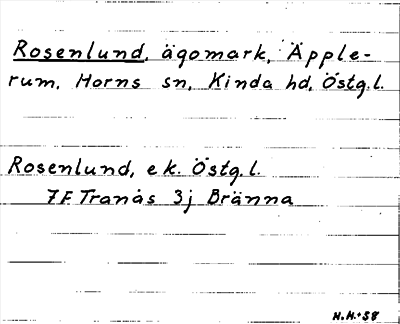 Rosenlund, ägomark, Äpple-
rum, Horns sn, Kinda hd, Östg.l.
Rosenlund, ek. Östg.l.
7F Tranås 3j Bränna
H.H. -58